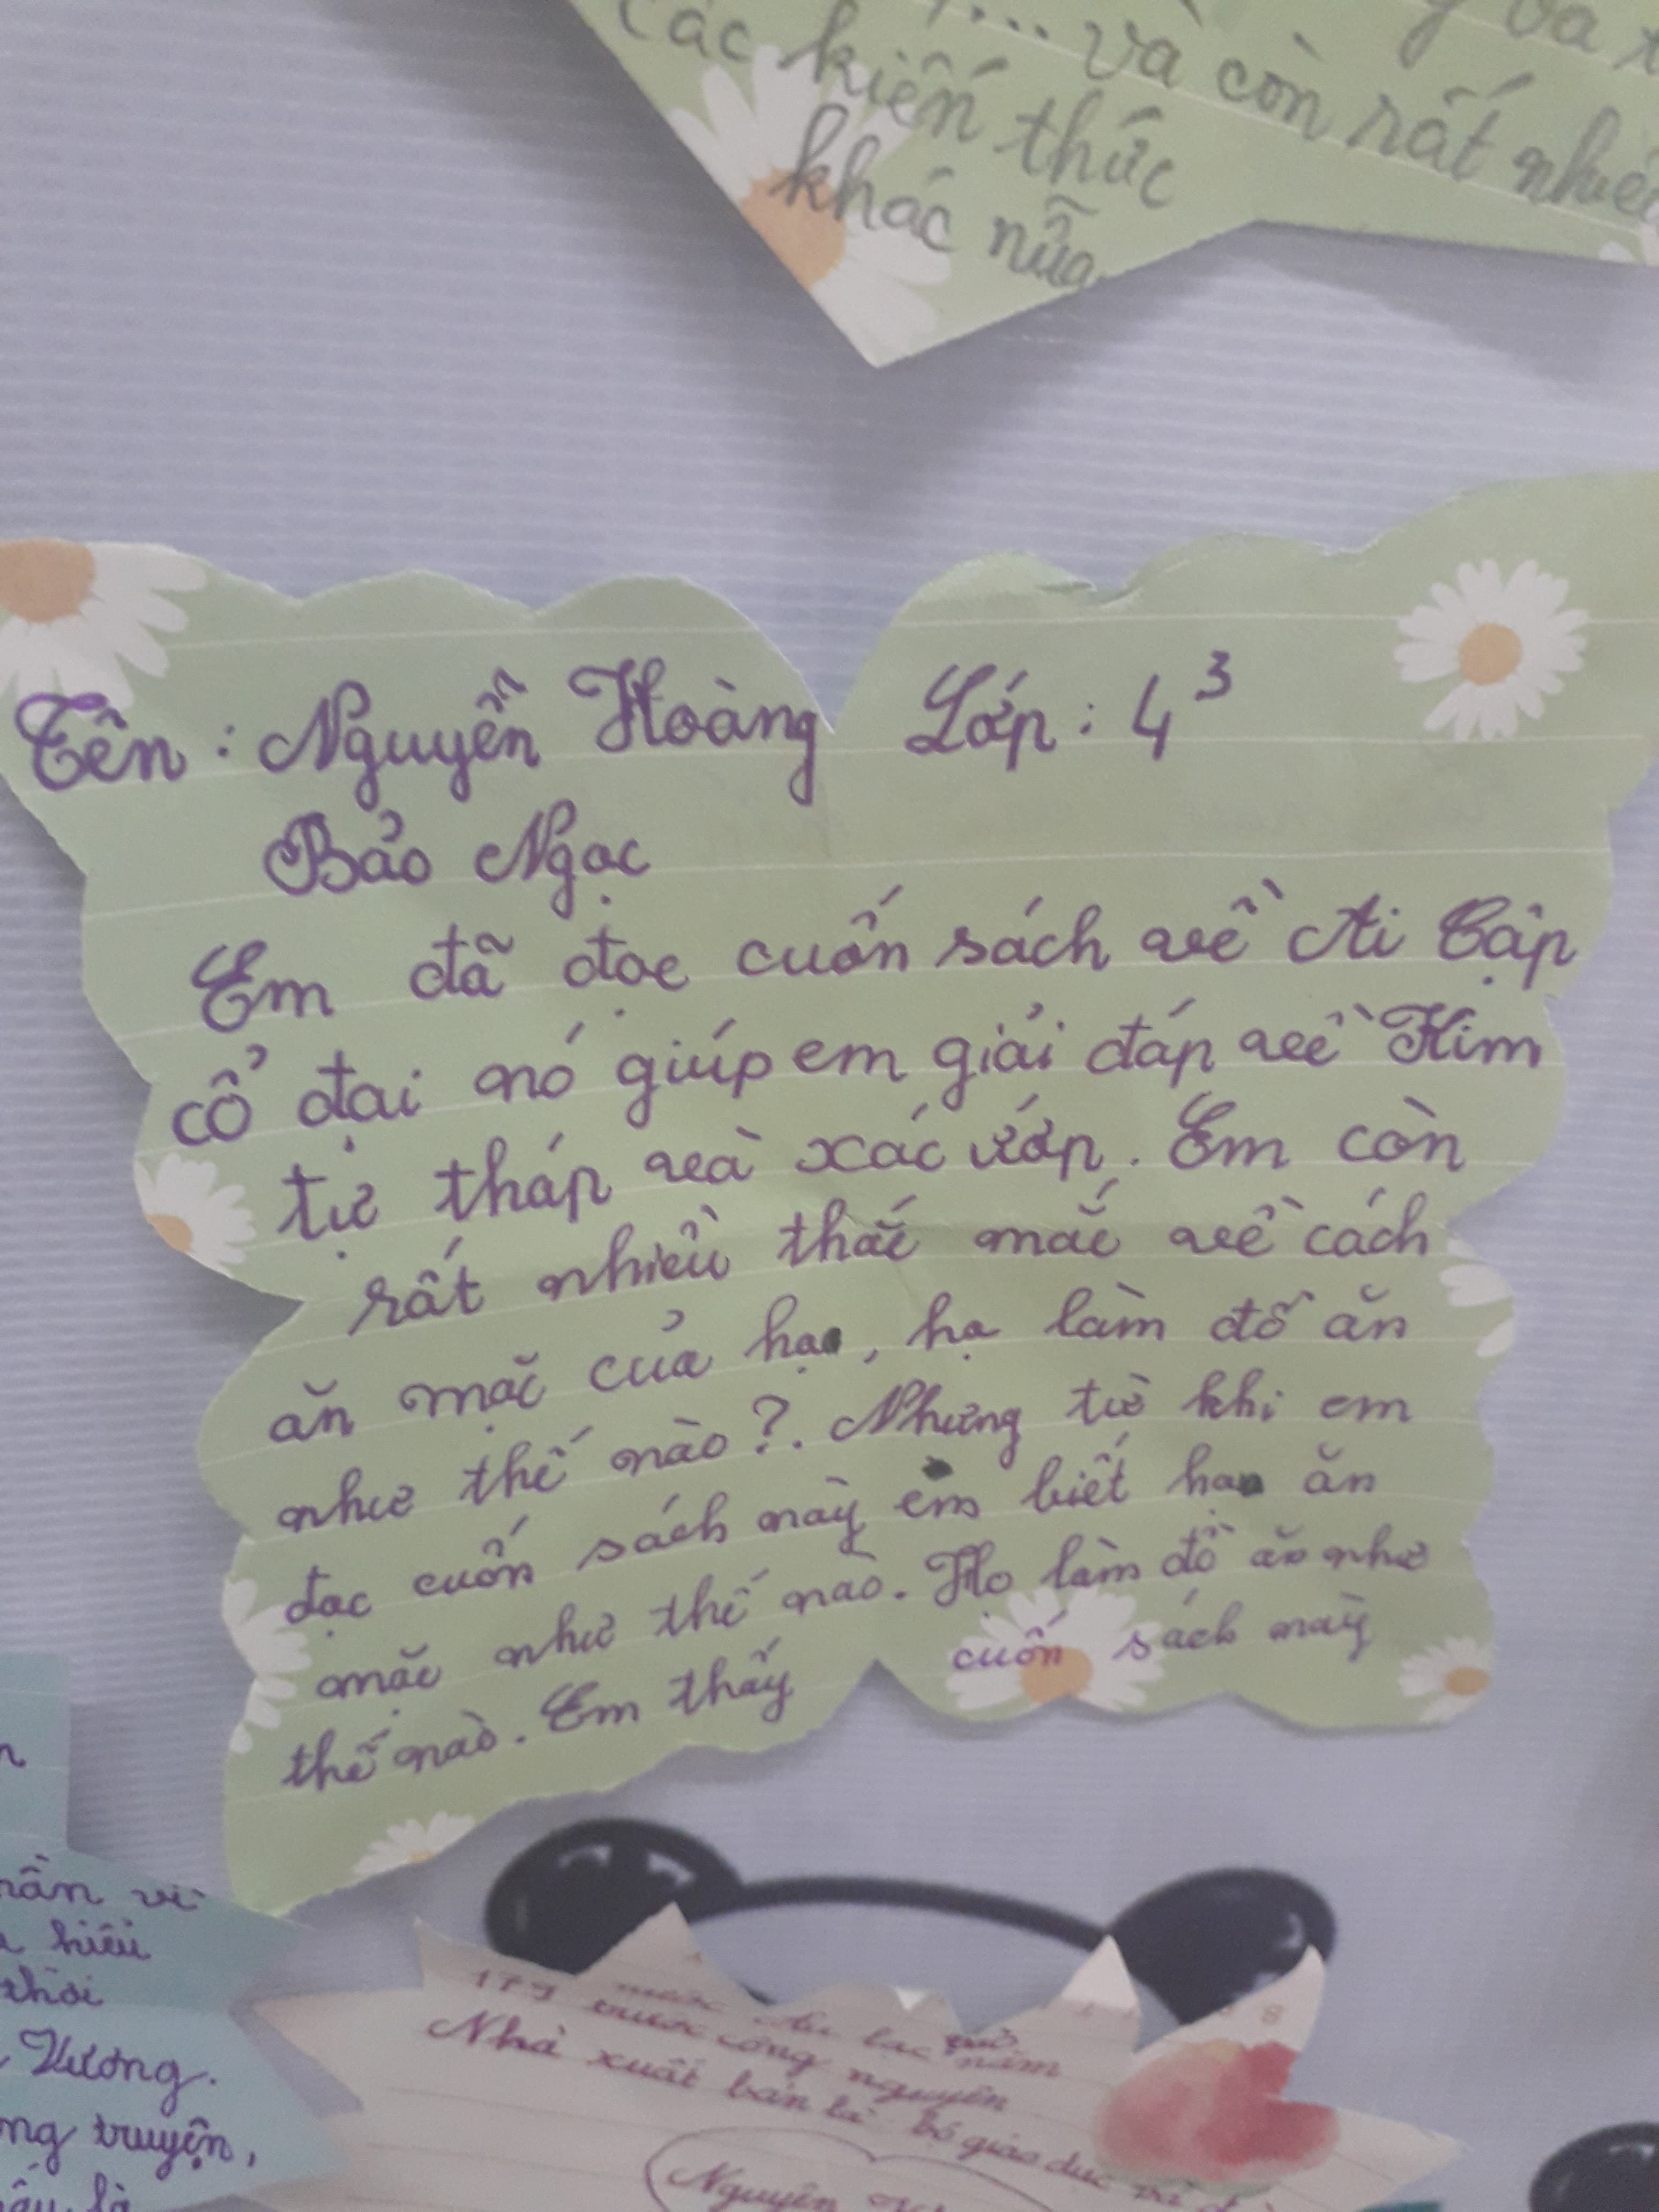 và còn rất
các kiến thức
khác nữa
Tên : Nguyễn Hoàng Lớp : 4³
Bảo Ngọc
Em đã đọc cuốn sách về Ai Cập
cổ đại nó giúp em giải đáp về Kim
tự tháp và xác ướp. Em còn
rất nhiều thắc mắc về cách
ăn mặc của họ, họ làm đồ ăn
như thế nào?. Nhưng từ khi em
đọc cuốn sách này em biết họ ăn
mặc như thế nào. Họ làm đồ ăn như
thế nào. Em thấy cuốn sách này
vì
hiểu
thời
Vương.
truyện,
là
trước công nguyên
Nhà xuất bản là bộ giáo dục
Nguyên